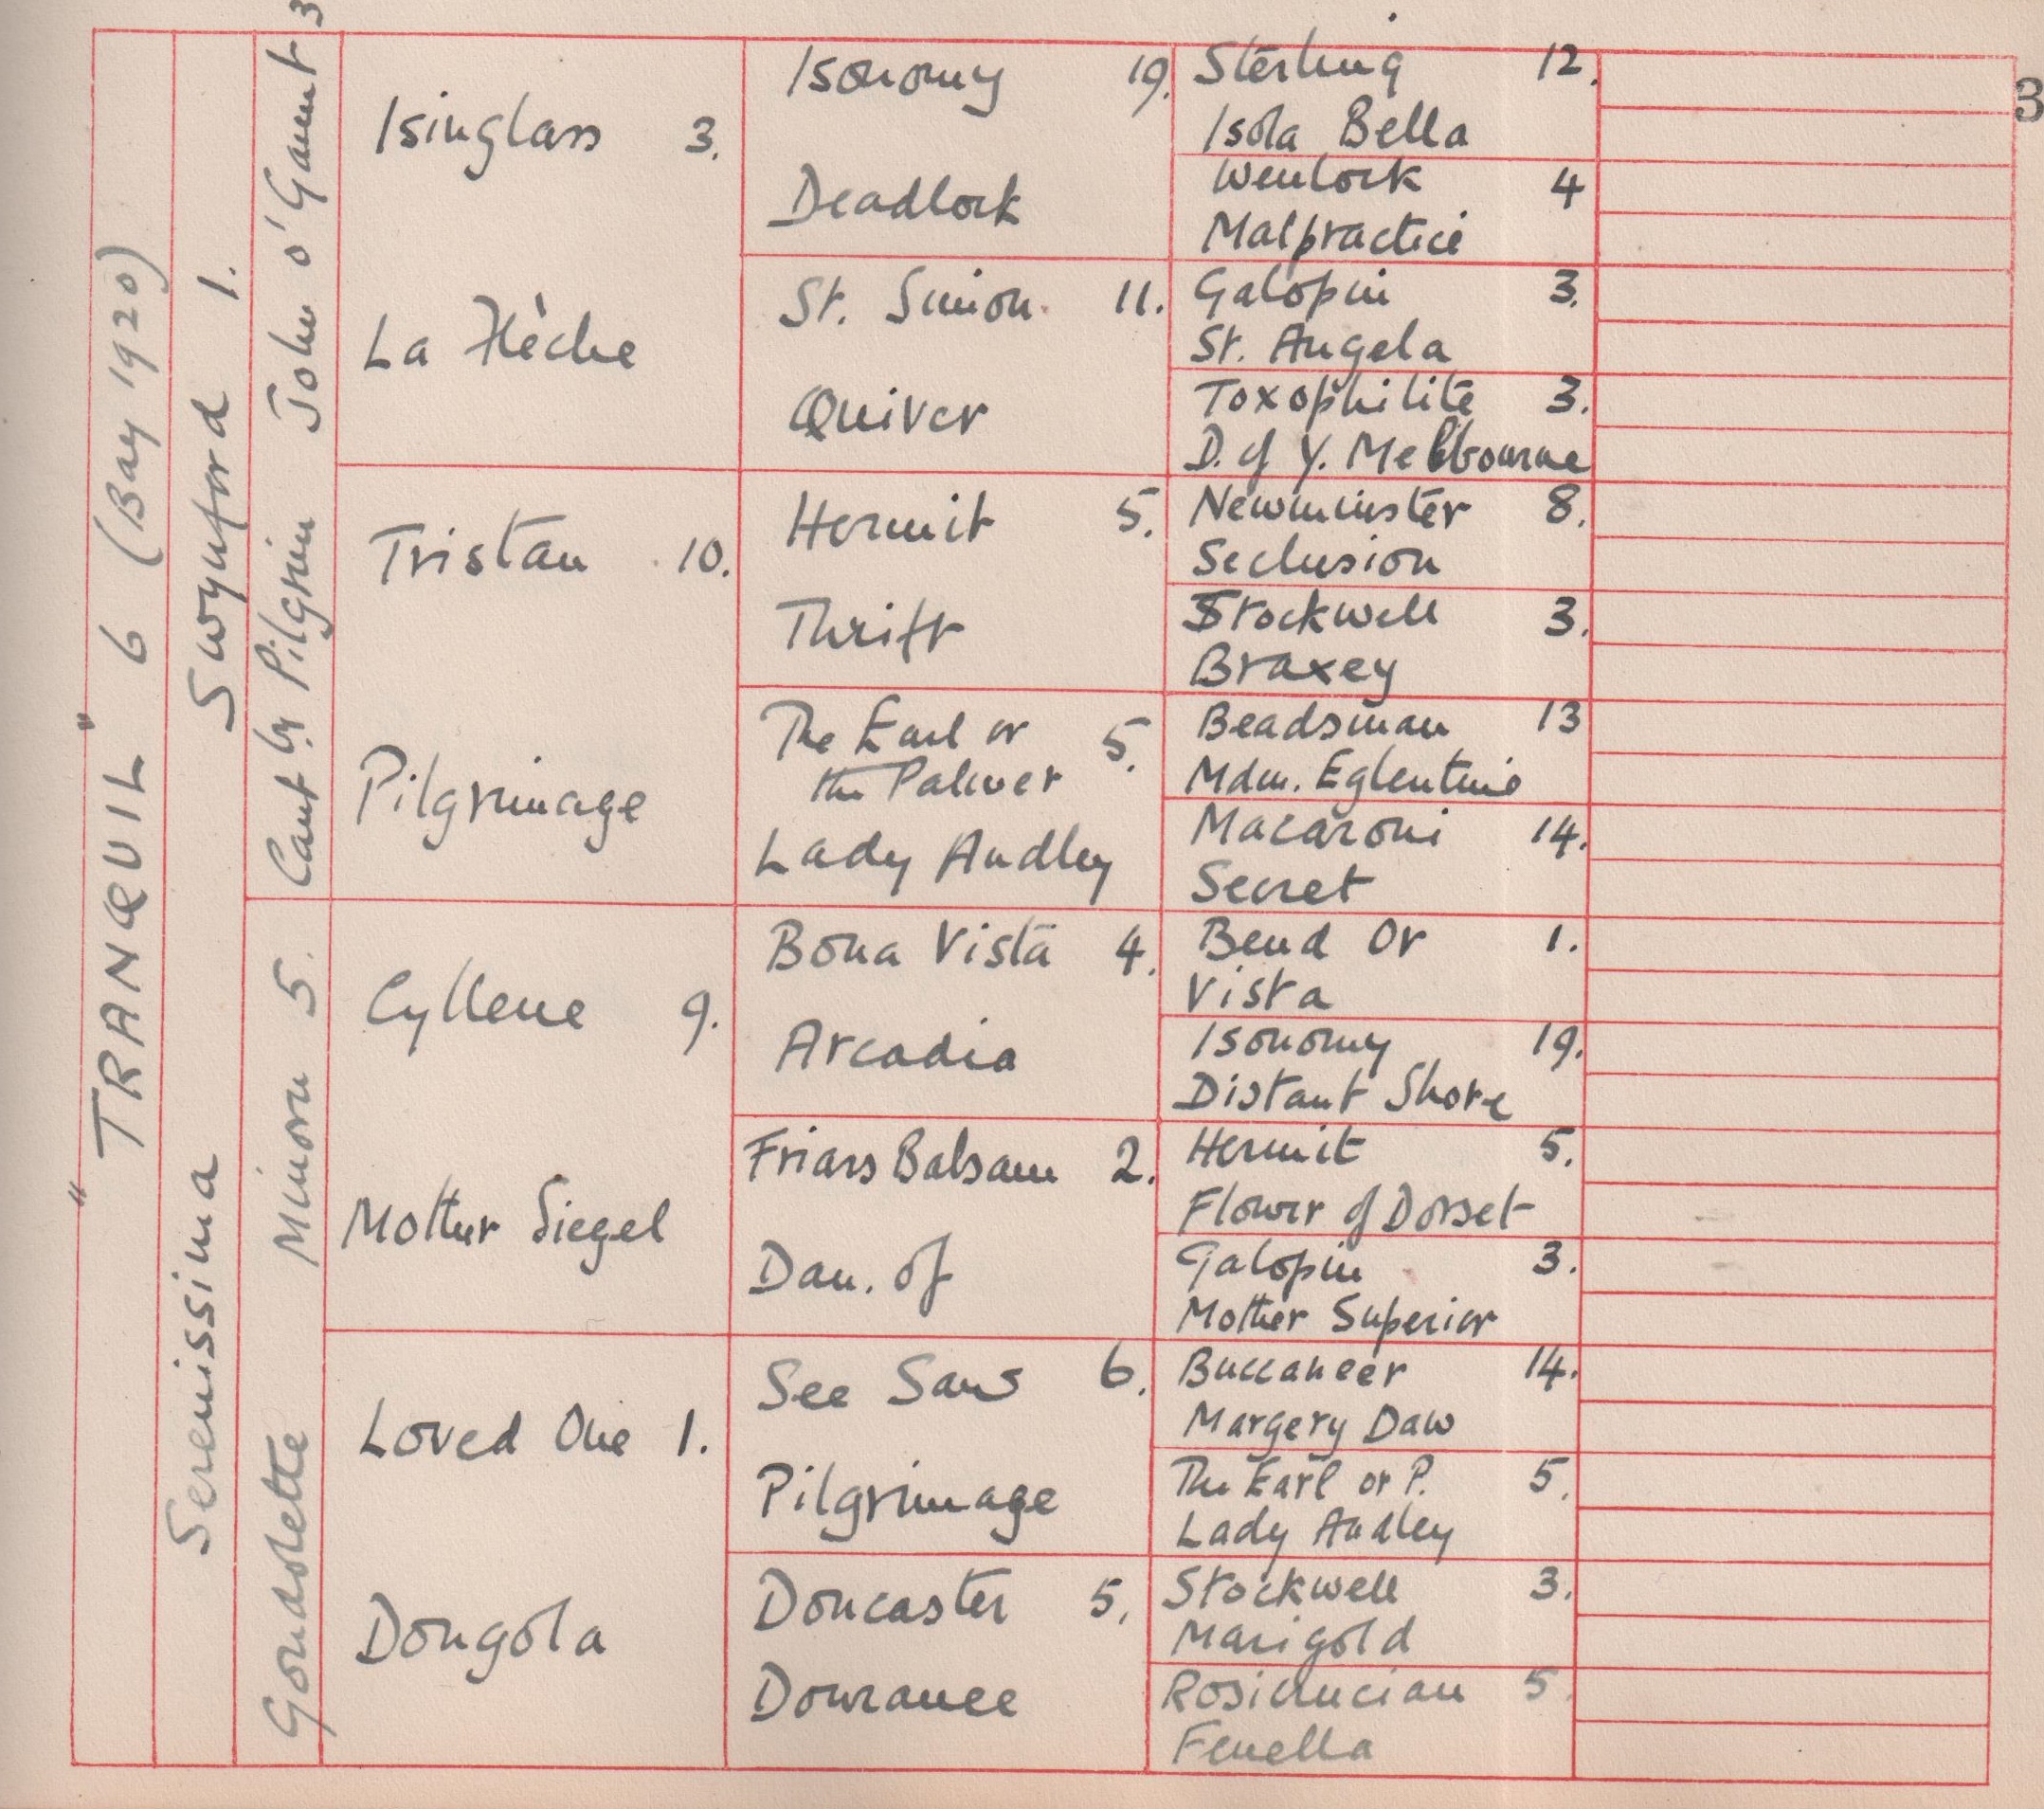 3
"TRANQUIL" 6 (Bay 1920)
Swynford 1.
Serenissima
John o' Gaunt 3
Cant by Pilgrim
Minoru 5.
Gondolette
Isinglass 3.
La Flèche
Tristan 10.
Pilgrimage
Cyllene 9.
Mother Siegel
Loved One 1.
Dongola
Isonomy 19.
Deadlock
St. Simon 11.
Quiver
Hermit 5.
Thrift
The Earl or 5.
the Palmer
Lady Audley
Bona Vista 4.
Arcadia
Friars Balsam 2.
Dau. of
See Saw 6.
Pilgrimage
Doncaster 5.
Douranee
Sterling 12.
Isola Bella
Wenlock 4
Malpractice
Galopin 3.
St. Angela
Toxophilite 3.
D. of Y. Melbourne
Newminster 8.
Seclusion
Stockwell 3.
Braxey
Beadsman 13
Mdm. Eglentine
Macaroni 14.
Secret
Bend Or 1.
Vista
Isonomy 19.
Distant Shore
Hermit 5.
Flower of Dorset
Galopin 3.
Mother Superior
Buccaneer 14.
Margery Daw
The Earl or P. 5.
Lady Audley
Stockwell 3.
Marigold
Rosicrucian 5.
Fenella